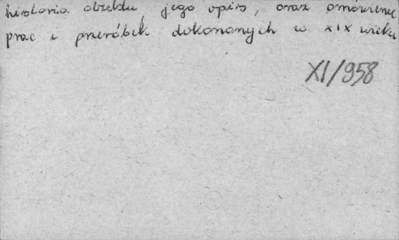 historia obiektu jego opis, oraz omówienie
prac i przeróbek dokonanych w XIX wieku
XI/958